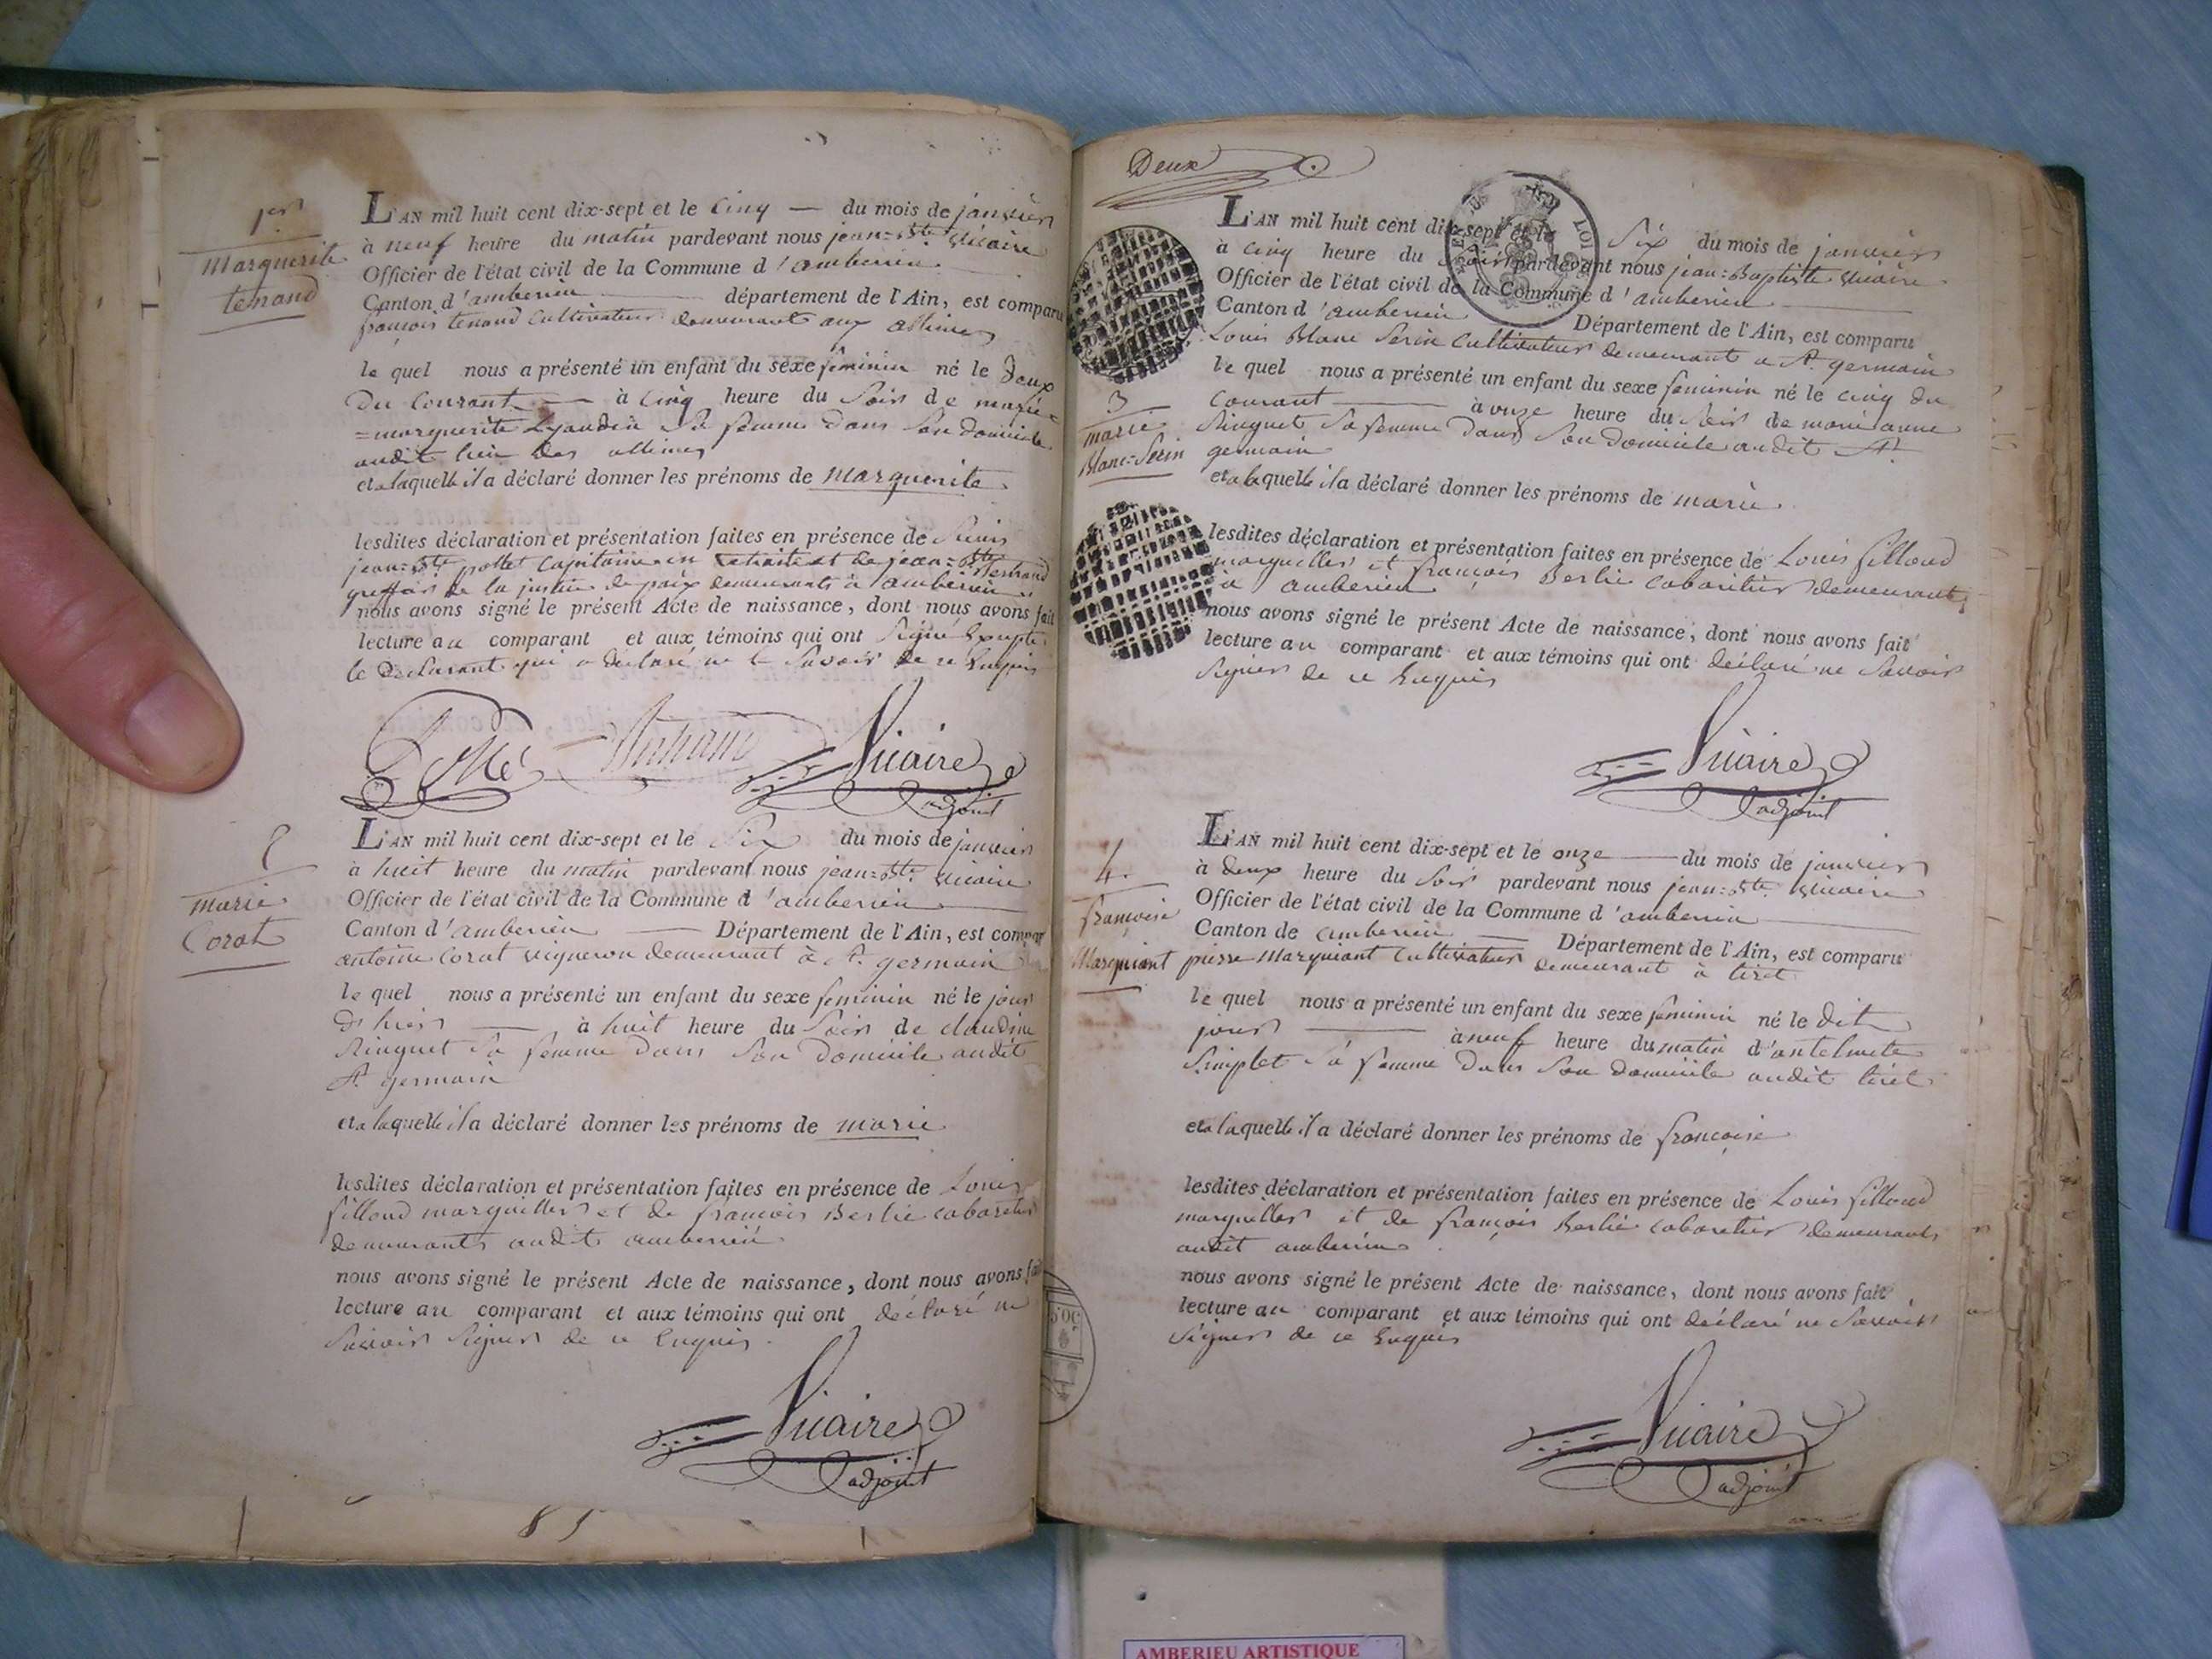 1er
Marguerite
tenand
L'AN mil huit cent dix-sept et le cinq du mois de janvier
à neuf heure du matin pardevant nous jean=Bte. Vicaire
Officier de l'état civil de la Commune d'amberieu
Canton d'amberieu département de l'Ain, est comparu
françois tenand cultivateur demeurant aux allimes
le quel nous a présenté un enfant du sexe féminin né le Deux
du Courant à cinq heure du soir de marie=
=marguerite sa femme dans son domicile
audit lieu des allimes
et a laquelle il a déclaré donner les prénoms de Marguerite
lesdites déclaration et présentation faites en présence de
jean=Bte capitaine en retraite et de jean=Bte Bertrand
greffier de la justice de paix demeurants à amberieu
nous avons signé le présent Acte de naissance, dont nous avons fait
lecture au comparant et aux témoins qui ont signé Excepté
le declarant qui a déclaré ne le savoir de ce Enquis
Vicaire
adjoint
2
marie
Corat
L'AN mil huit cent dix-sept et le Six du mois de janvier
à huit heure du matin pardevant nous jean=Bte. Vicaire
Officier de l'état civil de la Commune d'amberieu
Canton d'amberieu Département de l'Ain, est compar
antoine Corat vigneron demeurant à St. germain
le quel nous a présenté un enfant du sexe féminin né le jour
d'hier à huit heure du soir de claudine
Ringuet sa femme dans son domicile audit
St. germain
et a laquelle il a déclaré donner les prénoms de marie
lesdites déclaration et présentation faites en présence de Louis
filloud marguillier et de françois Berlie cabaretier
demeurants audit amberieu
nous avons signé le présent Acte de naissance, dont nous avons fait
lecture au comparant et aux témoins qui ont déclaré ne
savoir signer de ce Enquis.
Vicaire
adjoint
85
Deux
L'AN mil huit cent dix-sept et le Six du mois de janvier
à cinq heure du soir pardevant nous jean=Baptiste Vicaire
Officier de l'état civil de la Commune d'amberieu
Canton d'amberieu Département de l'Ain, est comparu
Louis Blanc Serin Cultivateur demeurant a St. germain
le quel nous a présenté un enfant du sexe feminin né le cinq du
courant à onze heure du soir de marie anne
Ringuet sa femme dans son domicile audit St.
germain
3
marie
Blanc=Serin
et a laquelle il a déclaré donner les prénoms de marie
lesdites déclaration et présentation faites en présence de Louis filloud
marguillier et françois Berlie cabaretier demeurants
a amberieu
nous avons signé le présent Acte de naissance, dont nous avons fait
lecture au comparant et aux témoins qui ont déclaré ne savoir
signer de ce Enquis
Vicaire
adjoint
4.
françoise
Marquiant
L'AN mil huit cent dix-sept et le onze du mois de janvier
à deux heure du soir pardevant nous jean=Bte Vicaire
Officier de l'état civil de la Commune d'amberieu
Canton de amberieu Département de l'Ain, est comparu
pierre Marquiant Cultivateur demeurant à tiret
le quel nous a présenté un enfant du sexe feminin né le dit
jour à neuf heure du matin d'antelmete
Simplet sa femme dans son domicile audit tiret
et a laquelle il a déclaré donner les prénoms de françoise
lesdites déclaration et présentation faites en présence de Louis filloud
marguillier et de françois Berlie cabaretier demeurants
audit amberieu
nous avons signé le présent Acte de naissance, dont nous avons fait
lecture au comparant et aux témoins qui ont déclaré ne savoir
signer de ce Enquis
Vicaire
adjoint
AMBERIEU ARTISTIQUE